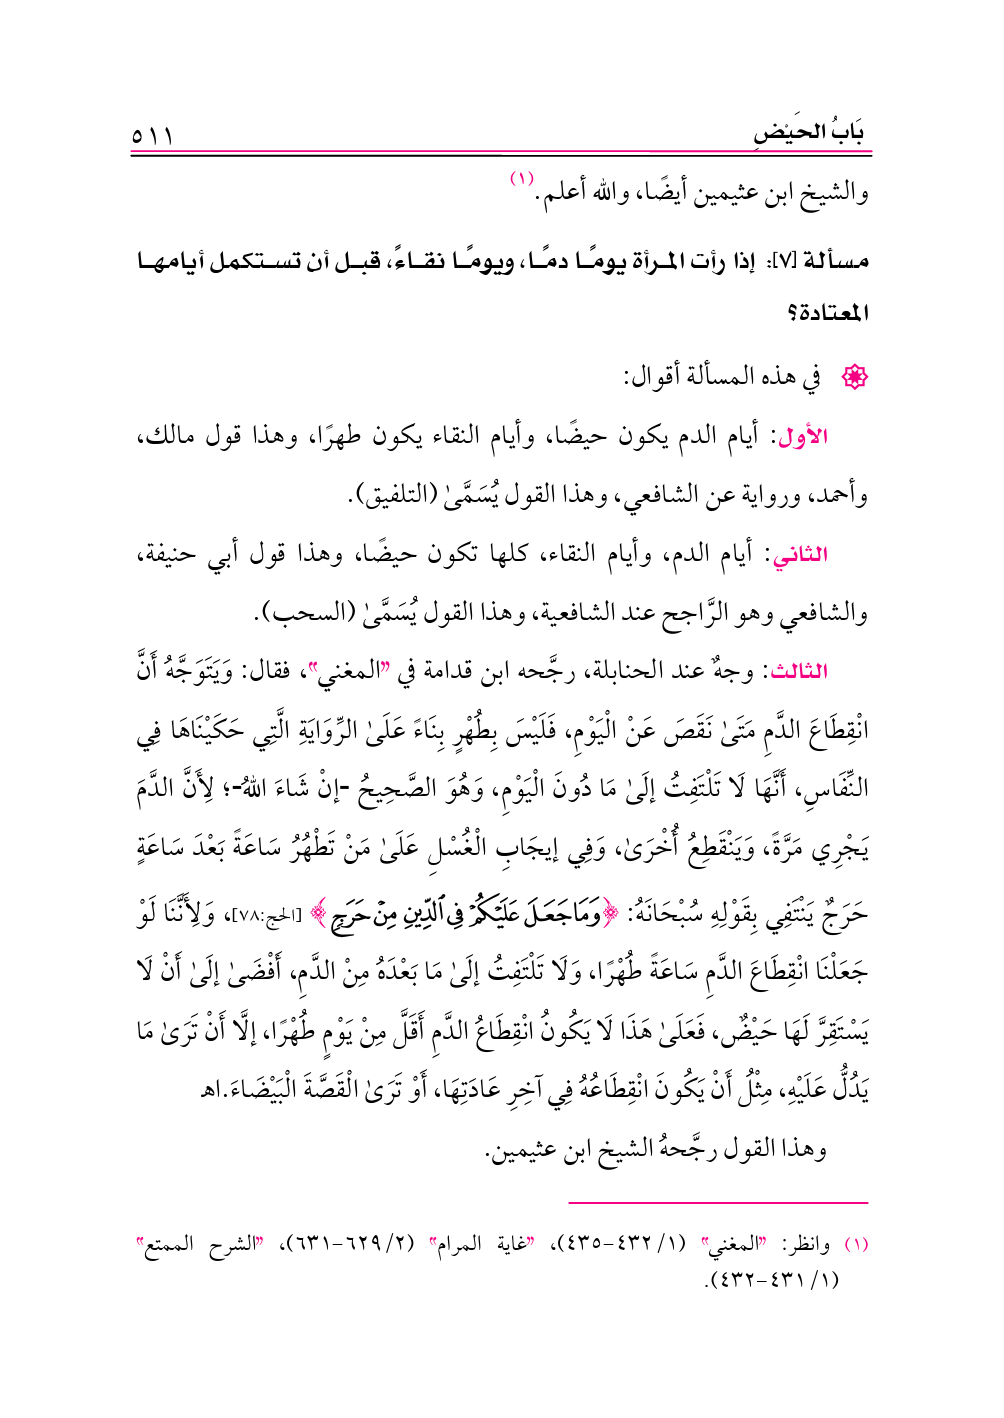 بَابُ الحَيْضِ
٥١١
والشيخ ابن عثيمين أيضًا، والله أعلم.(١)
مسألة [٧]: إذا رأت المرأة يومًا دمًا، ويومًا نقاءً، قبل أن تستكمل أيامها
المعتادة؟
في هذه المسألة أقوال:
الأول: أيام الدم يكون حيضًا، وأيام النقاء يكون طهرًا، وهذا قول مالك،
وأحمد، ورواية عن الشافعي، وهذا القول يُسَمَّىٰ (التلفيق).
الثاني: أيام الدم، وأيام النقاء، كلها تكون حيضًا، وهذا قول أبي حنيفة،
والشافعي وهو الرَّاجح عند الشافعية، وهذا القول يُسَمَّىٰ (السحب).
الثالث: وجهٌ عند الحنابلة، رجَّحه ابن قدامة في "المغني"، فقال: وَيَتَوَجَّهُ أَنَّ
انْقِطَاعَ الدَّمِ مَتَىٰ نَقَصَ عَنْ الْيَوْمِ، فَلَيْسَ بِطُهْرٍ بِنَاءً عَلَىٰ الرِّوَايَةِ الَّتِي حَكَيْنَاهَا فِي
النِّفَاسِ، أَنَّهَا لَا تَلْتَفِتُ إلَىٰ مَا دُونَ الْيَوْمِ، وَهُوَ الصَّحِيحُ -إنْ شَاءَ اللهُ-؛ لِأَنَّ الدَّمَ
يَجْرِي مَرَّةً، وَيَنْقَطِعُ أُخْرَىٰ، وَفِي إيجَابِ الْغُسْلِ عَلَىٰ مَنْ تَطْهُرُ سَاعَةً بَعْدَ سَاعَةٍ
حَرَجٌ يَنْتَفِي بِقَوْلِهِ سُبْحَانَهُ: ﴿وَمَا جَعَلَ عَلَيْكُمْ فِي ٱلدِّينِ مِنْ حَرَجٍ﴾ [الحج:٧٨]، وَلِأَنَّنَا لَوْ
جَعَلْنَا انْقِطَاعَ الدَّمِ سَاعَةً طُهْرًا، وَلَا تَلْتَفِتُ إلَىٰ مَا بَعْدَهُ مِنْ الدَّمِ، أَفْضَىٰ إلَىٰ أَنْ لَا
يَسْتَقِرَّ لَهَا حَيْضٌ، فَعَلَىٰ هَذَا لَا يَكُونُ انْقِطَاعُ الدَّمِ أَقَلَّ مِنْ يَوْمٍ طُهْرًا، إلَّا أَنْ تَرَىٰ مَا
يَدُلُّ عَلَيْهِ، مِثْلُ أَنْ يَكُونَ انْقِطَاعُهُ فِي آخِرِ عَادَتِهَا، أَوْ تَرَىٰ الْقَصَّةَ الْبَيْضَاءَ.اهـ
وهذا القول رجَّحهُ الشيخ ابن عثيمين.
(١) وانظر: "المغني" (١/ ٤٣٢-٤٣٥)، "غاية المرام" (٢/ ٦٢٩-٦٣١)، "الشرح الممتع"
(١/ ٤٣١-٤٣٢).